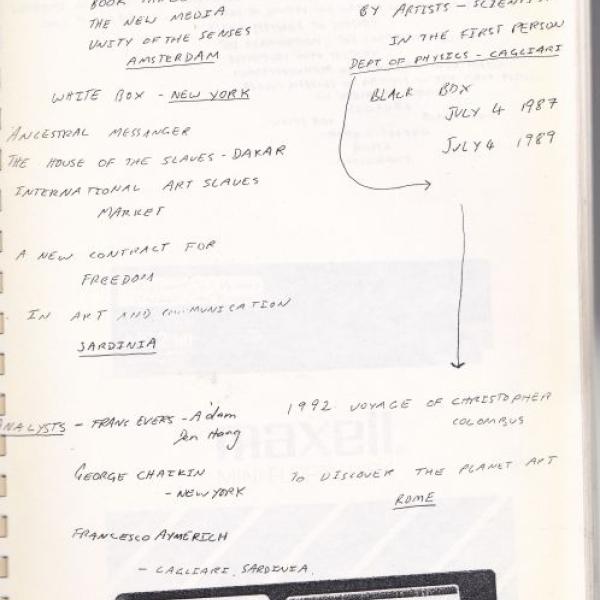 BOOK
THE NEW MEDIA
UNITY OF THE SENSES
AMSTERDAM
WHITE BOX - NEW YORK
ANCESTRAL MESSANGER
THE HOUSE OF THE SLAVES - DAKAR
INTERNATIONAL ART SLAVES
MARKET
A NEW CONTRACT FOR
FREEDOM
IN ART AND COMMUNICATION
SARDINIA
BY ARTISTS - SCIENTISTS
IN THE FIRST PERSON
DEPT OF PHYSICS - CAGLIARI
BLACK BOX
JULY 4 1987
JULY 4 1989
1992 VOYAGE OF CHRISTOPHER
COLOMBUS
TO DISCOVER THE PLANET ART
ROME
ANALYSTS - FRANS EVERS - A'dam
Den Haag
GEORGE CHAIKIN
- NEW YORK
FRANCESCO AYMERICH
- CAGLIARI, SARDINIA.
maxell